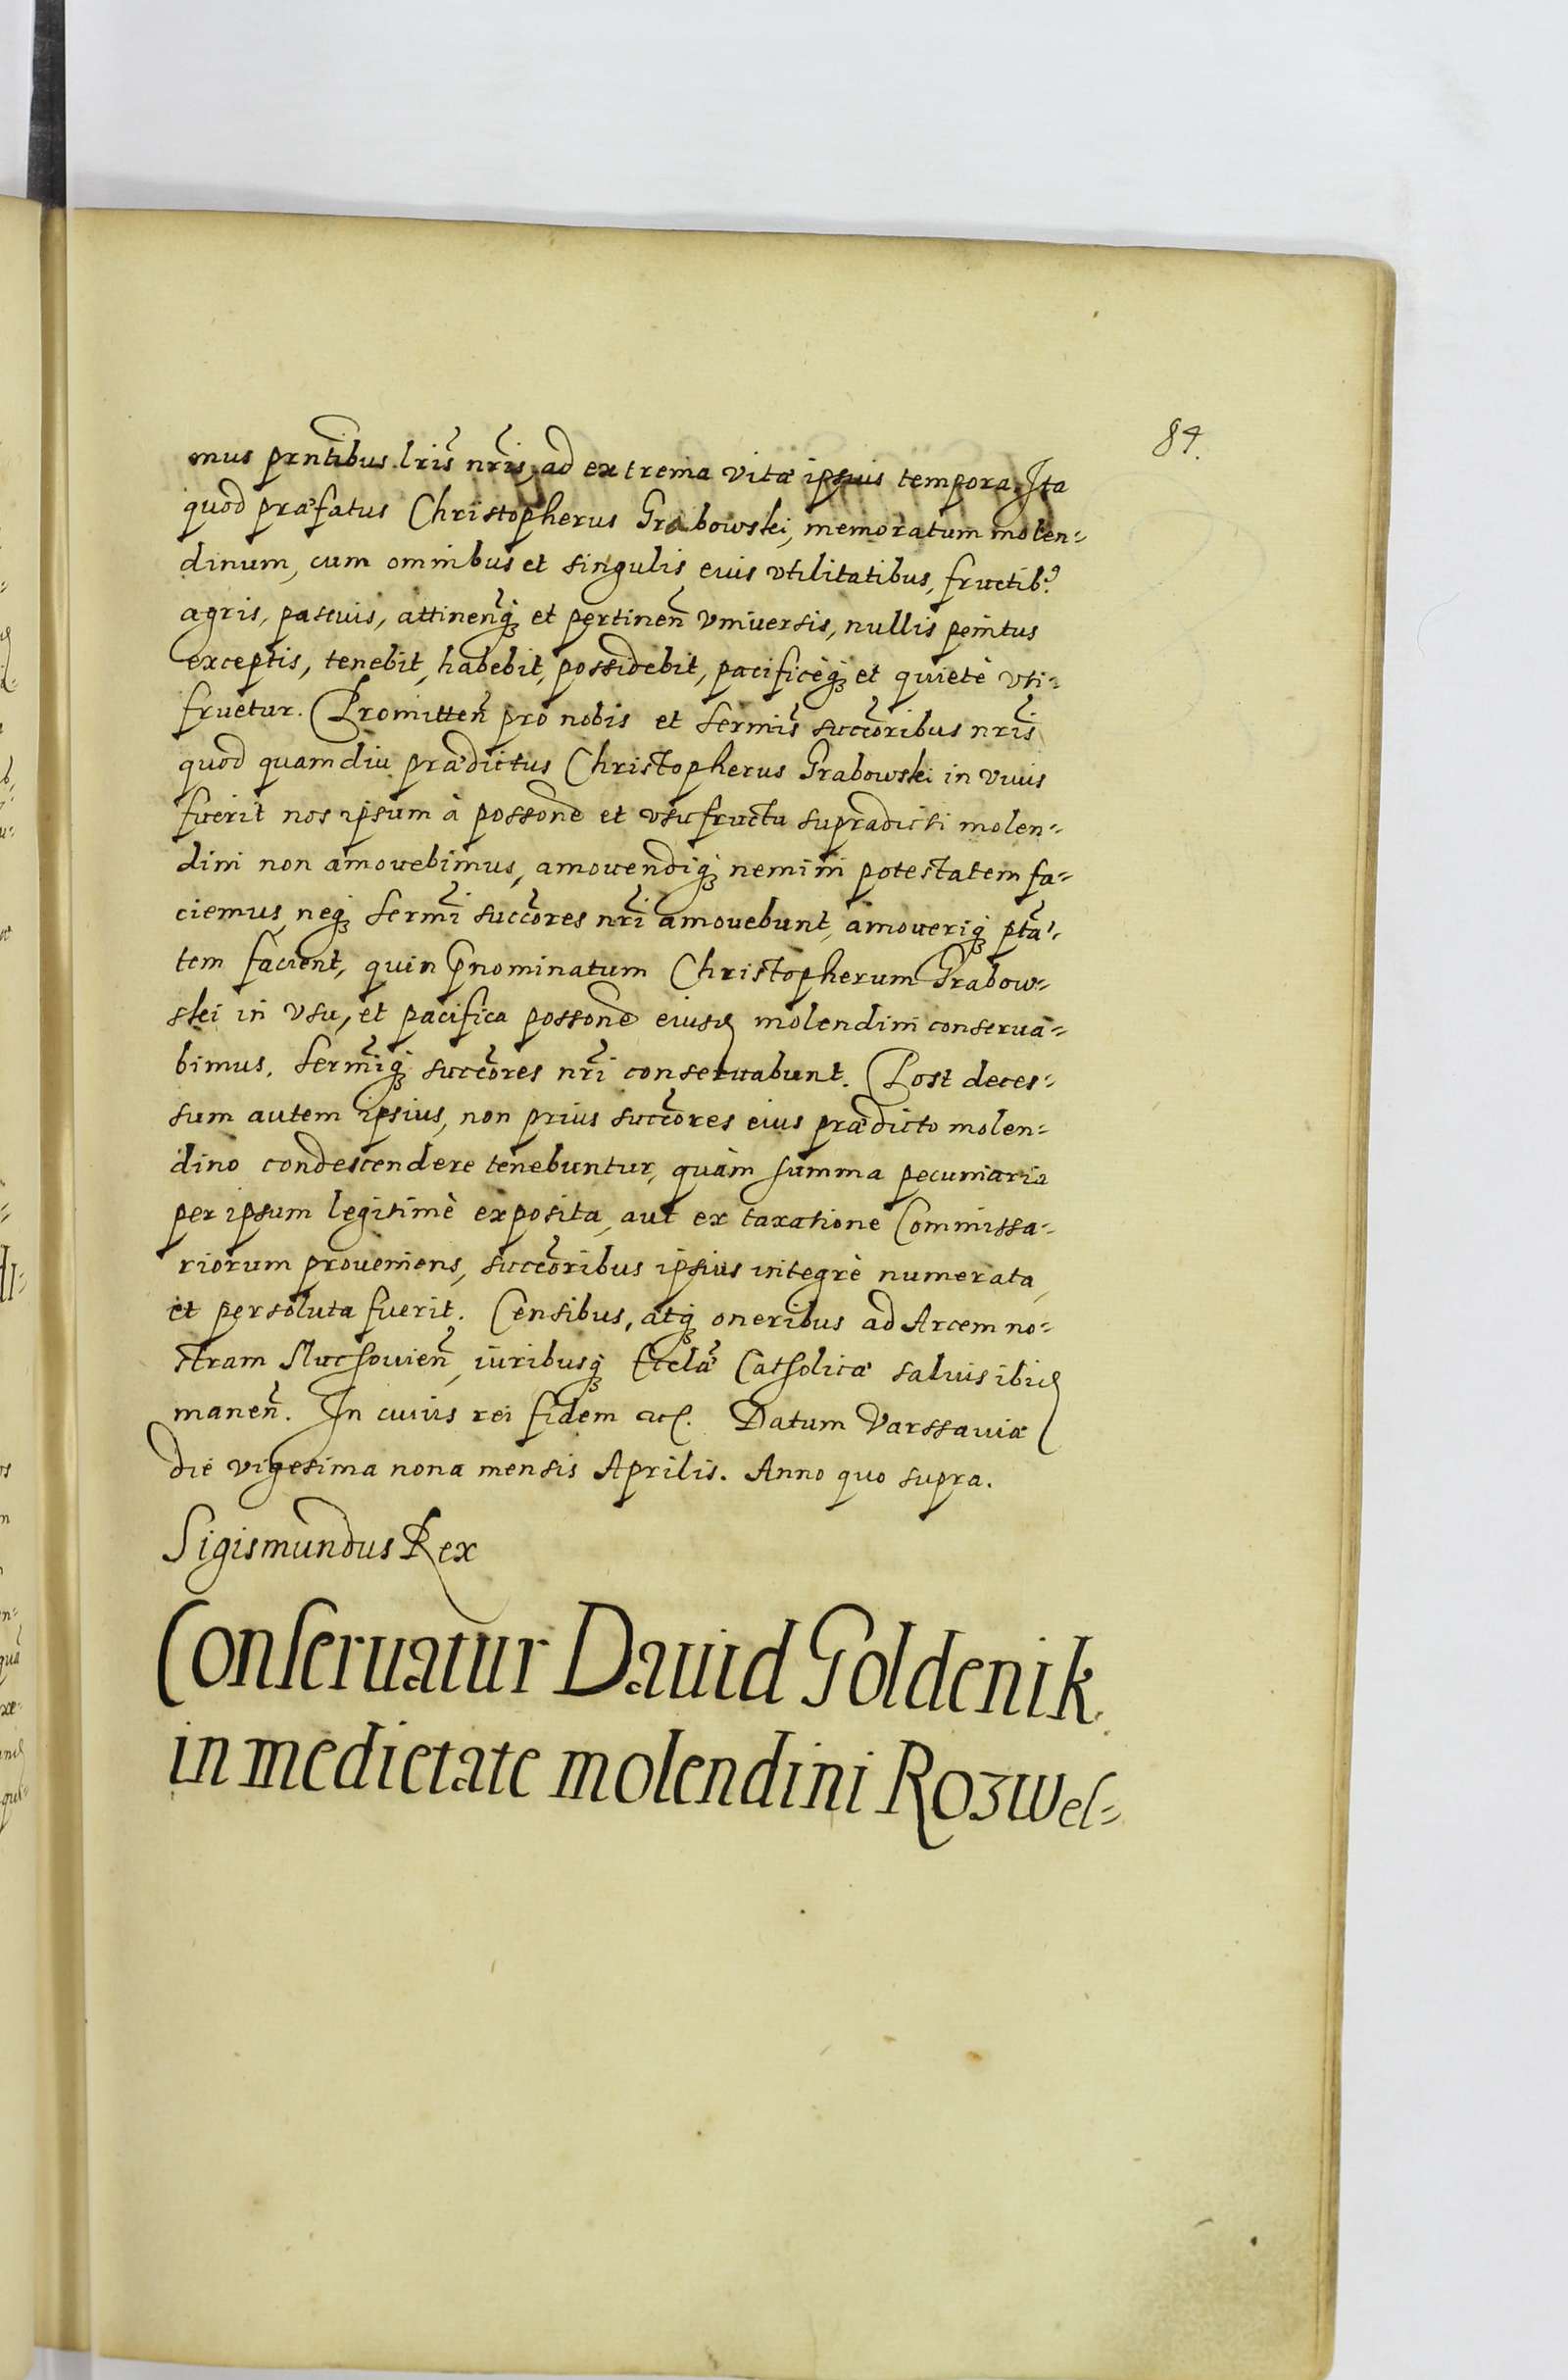 84.
mus prntibus lris nris, ad extrema vitæ ipsius tempora. Ita
quod præfatus Christopherus Grabowski, memoratum molen=
dinum, cum omnibus et singulis eius vtilitatibus, fructib9
agris, pascuis, attinenq3 et pertinen vniuersis, nullis penitus
exceptis, tenebit, habebit, possidebit, pacificèq3 et quietè vti=
fruetur. Promitten pro nobis et sermis succoribus nris
quod quamdiu prædictus Christopherus Grabowski in viuis
fuerit nos ipsum à possone et vsufructu supradicti molen=
dini non amouebimus, amouendiq3 nemini potestatem fa=
ciemus, neq3 sermi succores nri amouebunt, amoueriq3 pta=
tem facient, quin pnominatum Christopherum Grabow=
ski in vsu, et pacifica possone eiusd molendini conserua=
bimus, sermiq3 succores nri conseruabunt. Post deces=
sum autem ipsius, non prius succores eius prædicto molen=
dino condescendere tenebuntur, quàm summa pecuniaria
per ipsum legitimè exposita, aut ex taxatione Commissa=
riorum proueniens, succoribus ipsius integrè numerata,
et persoluta fuerit. Censibus, atq3 oneribus ad Arcem no=
stram Sluchouien, iuribusq3 Ecclæ Catholicæ saluis ibid
manen. In cuius rei fidem etc. Datum Varssauiæ
die vigesima nona mensis Aprilis. Anno quo supra.
Sigismundus Rex
Conseruatur Dauid Goldenik
in medietate molendini Rozwel=